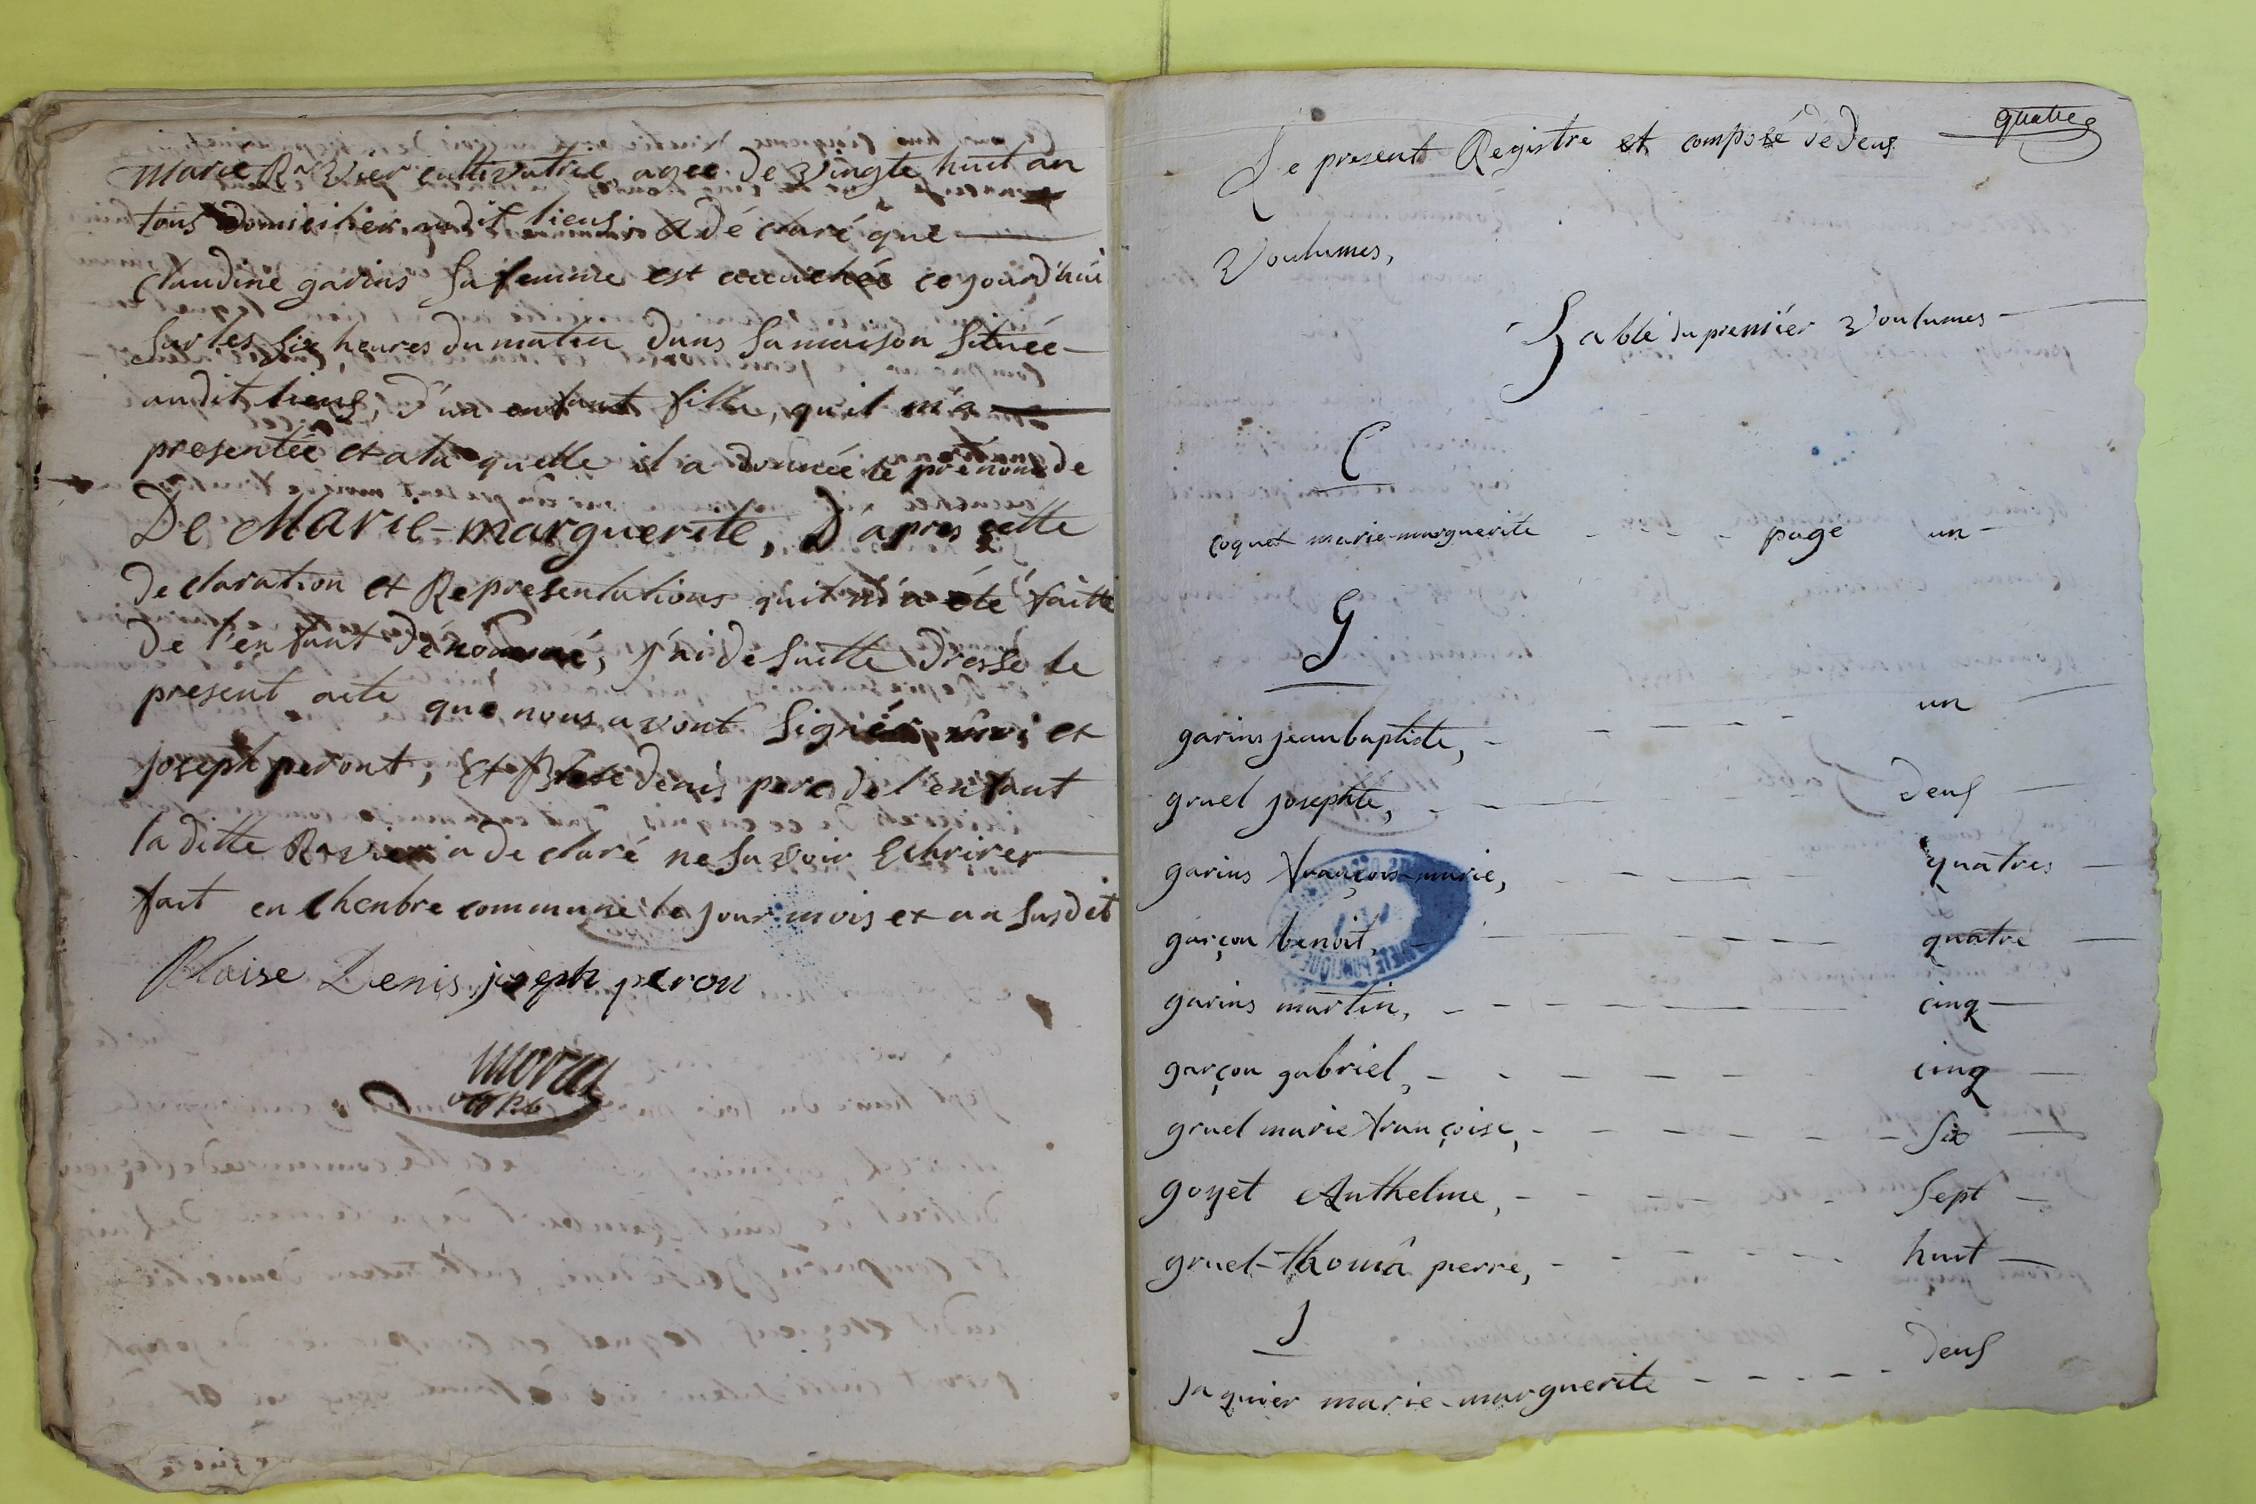 marie Ravier cultivatrice, agee de vingte huit an
tous domicilier audit lieus, a dé claré que
claudine garins sa femme est accuchée ce jourd'hui
sur les six heures du matin dans sa maison située
audit lieus, d'un enfant fille, qu'il m'a
presentée et a la quelle il a donnée le prénom de
De Marie-marguerite, D'apres cette
declaration et Representations qu'il m'a été faitte
de l'enfant dénommé, j'ai de suitte dressé le
present acte que nous avont signér, moi et
joseph peront, et Blaise denis pere de l'enfant
la ditte Ravier a de claré ne savoir Echrirer
fait en chenbre commune le jour mois et an susdit
Blaise Denis joseph peron
quatre
Le present Registre et composé de deus
Voulumes,
Table du premiér Voulumes
C
coquet marie-marguerite page un
G
garins jean baptiste, un
gruel josephte, deus
garins françois-marie, quatres
garçon benoit, quatre
garins martin, cinq
garçon gabriel, cinq
gruel marie françoise, six
goyet Anthelme, sept
gruel-thomâ pierre, huit
J
jaquier marie-marguerite deus